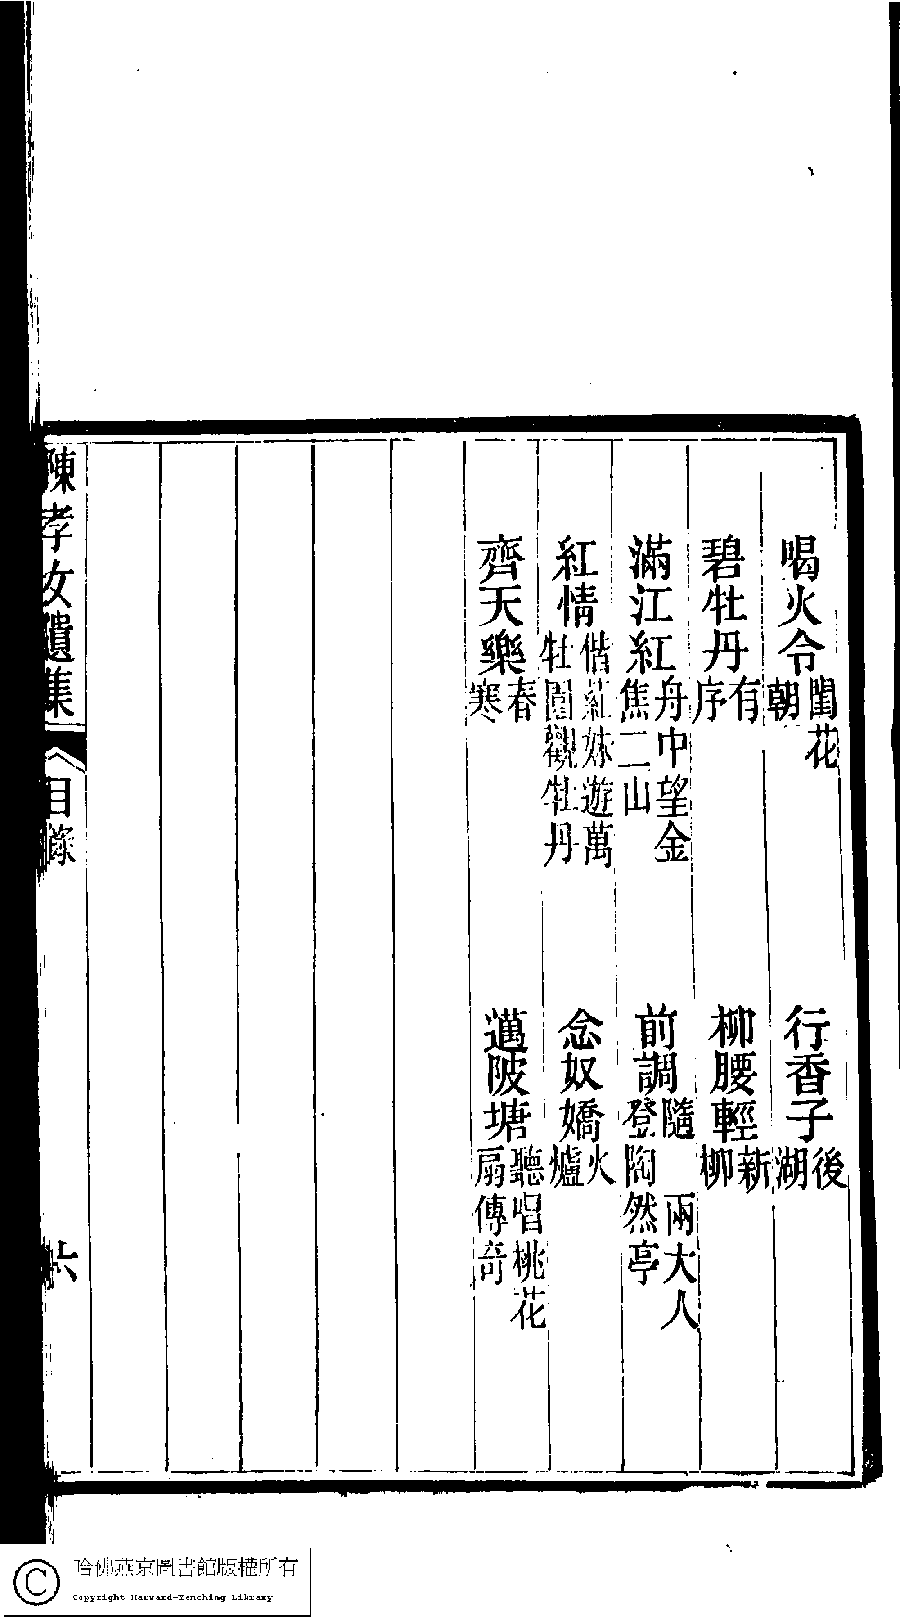 喝火令閨花朝 行香子後湖
碧牡丹有序 柳腰輕新柳
滿江紅舟中望金焦二山 前調隨 兩大人登陶然亭
紅情偕紅妹遊萬牡園觀牡丹 念奴嬌火爐
齊天樂春寒 邁陂塘聽唱桃花扇傳奇
陳孝女遺集 目錄 六
哈佛燕京圖書館版權所有
Copyright Harvard-Yenching Library